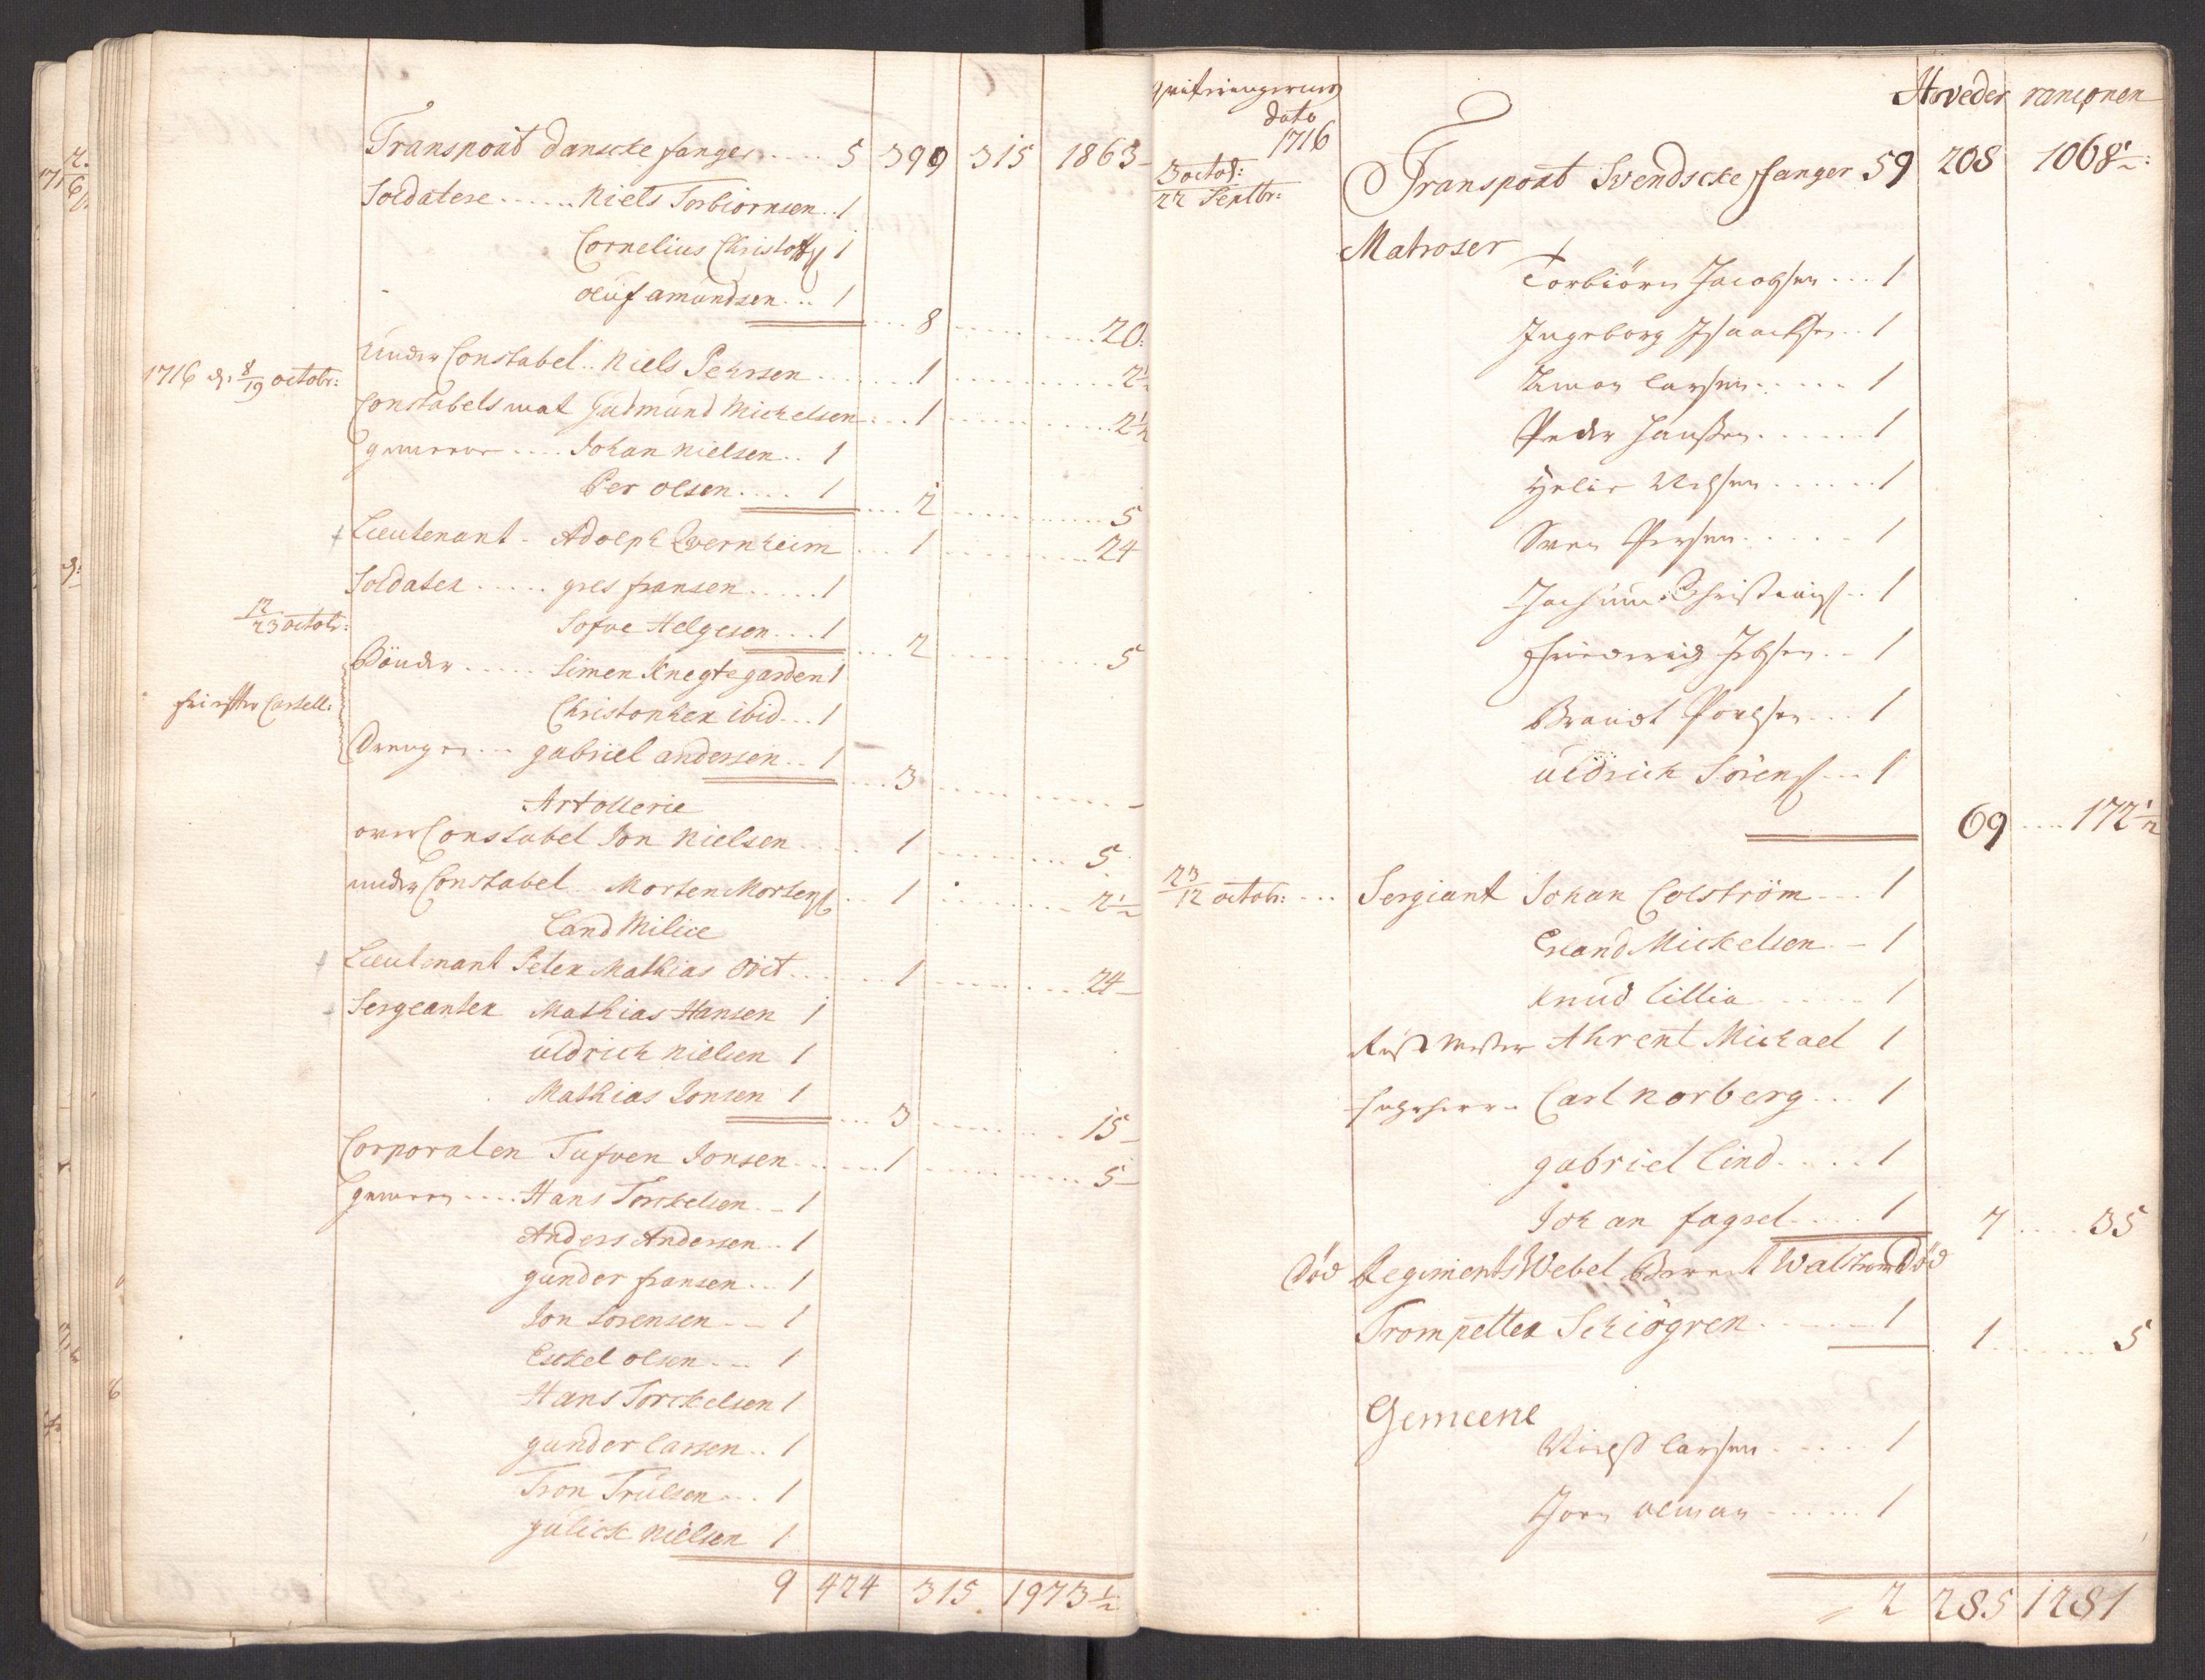 Transport danscke fanger ..... 5 399 315 1863
Soldatere ...... Niels Torbiørnsen .. 1
Cornelius Christoff 1
oluf amundsen ... 1
... 8 ....... 20:
1716 d. 8/19 octobr:
under Constabel .. Niels Pehrsen ....... 1 ......... 2½
Constabels mat Gudmund Mickelsen ... 1 ......... 2½
gemeene .... Johan nielsen .. 1
Per olsen .... 1
... 2 ......... 5
Lieutenant - Adolph Qvernheim ... 1 ......... 24
Soldater ..... gres fransen ..... 1
12/23 octobr:
Sofve Helgesen ... 1
... 2 ......... 5
Bönder ..... Simen Knegtegarden 1
Cartell:
Christopher ibid ... 1
Drenge ... gabriel andersen .. 1
... 3 ....... -
Artollerie
over Constabel Jon Nielsen .... 1 ....... 5
under Constabel .. Morten Mortens .. 1 ....... 2½
Land Milice
Lieutenant Peter Mathias Orit .... 1 ....... 24 -
Sergeanter Mathias Hansen 1
uldrich nielsen 1
Mathias Jonsen 1
... 3 ....... 15 -
Corporalen Tufven Jonsen ...... 1 ....... 5 -
gemeene .... Hans Torckelsen .. 1
Anders Andersen .. 1
gunder fransen ... 1
Jon Sörensen ... 1
Eschel olsen ... 1
Hans Torckelsen 1
gunder larsen .. 1
Tron Trulsen ... 1
gulick Nielsen 1
9 424 315 1973½
Hoveder rancionen
dato
1716
3 octob:
22 Septbr:
Transport Svendscke ffanger 59 208 1068½:
Matroser
Torbiörn Jacobsen ... 1
Ingeborg Isaachsen .. 1
Simon larsen ..... 1
Peder Hanssen ...... 1
...... 1
Sven Persen ..... 1
Jochum Christians .. 1
Friederich Ibsen .. 1
Brandt Poulsen ... 1
uldrich Sörens ... 1
69 .... 172½
23/12 octobr: ... Sergiant Johan Colström ... 1
Erland Mickelsen - 1
Knud Lillia ...... 1
Rustmester Ahrent Michael 1
Carl Norberg ... 1
gabriel lind .... 1
Johan fagsel .... 1
7 .... 35
död Regiments Webel Berent Walstrom död
Trompetter Schiögren ...... 1
1 ...... 5
Gemeene
larsen ..... 1
Joen olman ...... 1
2 285 1281